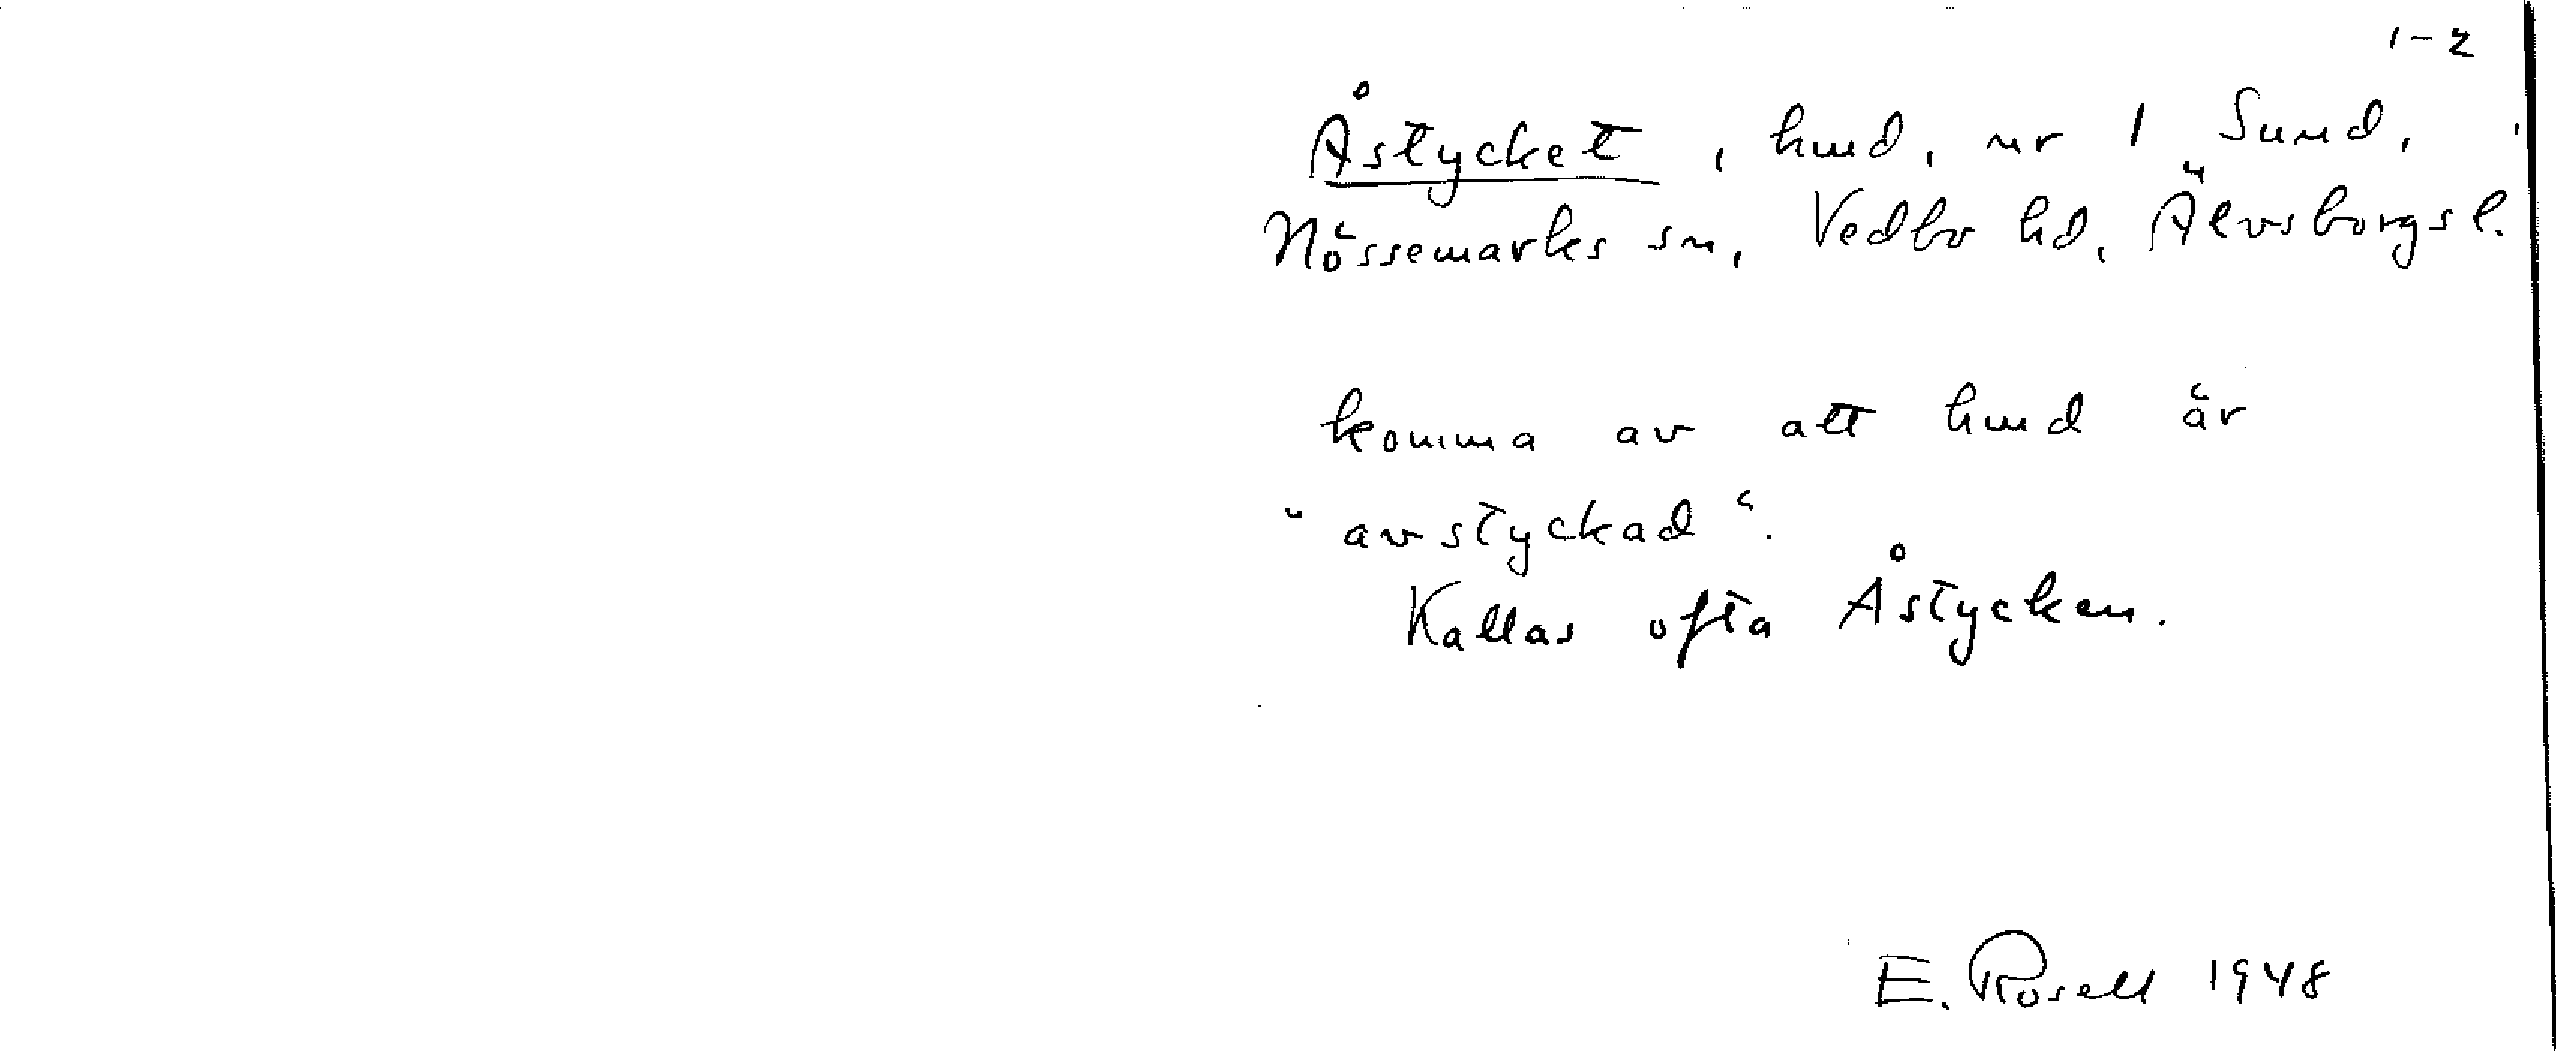 1-2
Åstycket, hmd, nr 1 Sund,
Nössemarks sn, Vedbo hd, Älvsborgs l.
komma av att hmd är
"avstyckad".
Kallas ofta Åstycken.
E. Rosell 1948